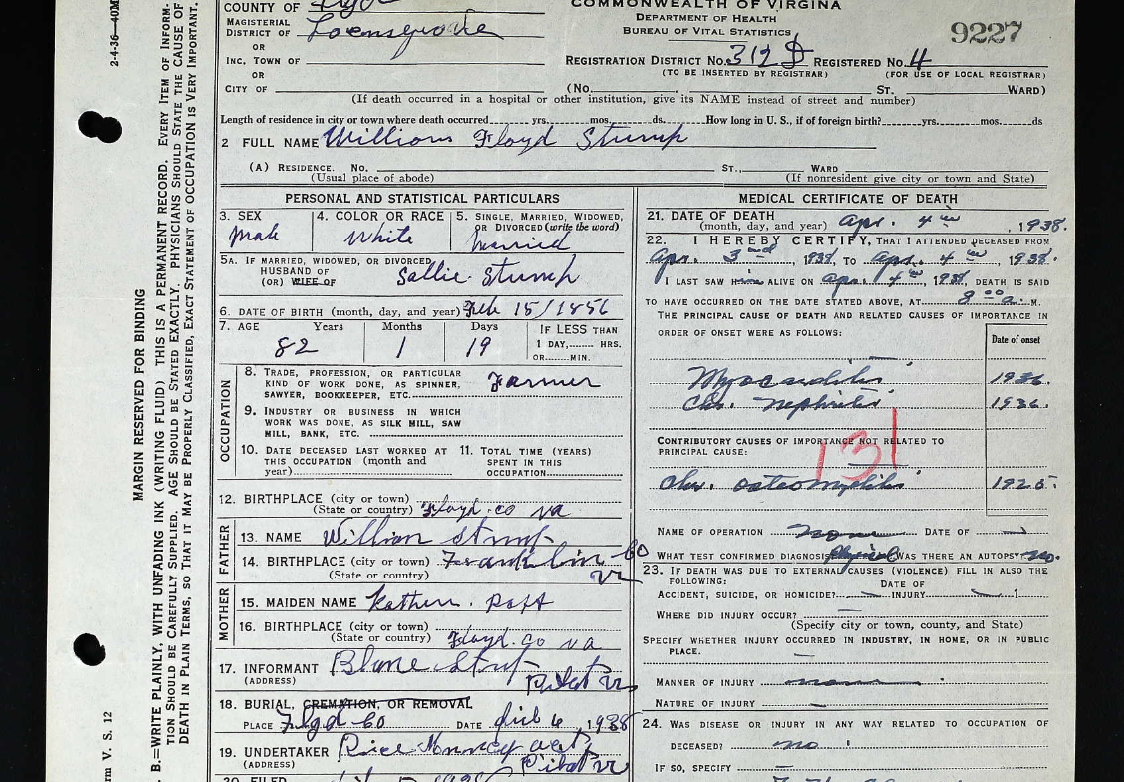 COMMONWEALTH OF VIRGINIA
DEPARTMENT OF HEALTH
BUREAU OF VITAL STATISTICS
9227
COUNTY OF
MAGISTERIAL
DISTRICT OF
OR
INC. TOWN OF
OR
CITY OF
REGISTRATION DISTRICT No. 312 REGISTERED No. 4
(TO BE INSERTED BY REGISTRAR) (FOR USE OF LOCAL REGISTRAR)
(No. ST. WARD)
(If death occurred in a hospital or other institution, give its NAME instead of street and number)
Length of residence in city or town where death occurred yrs. mos. ds. How long in U. S., if of foreign birth? yrs. mos. ds
2 FULL NAME William Floyd Stump
(A) RESIDENCE. No. ST., WARD
(Usual place of abode) (If nonresident give city or town and State)
PERSONAL AND STATISTICAL PARTICULARS
3. SEX 4. COLOR OR RACE 5. SINGLE, MARRIED, WIDOWED,
OR DIVORCED (write the word)
Male White Married
5A. IF MARRIED, WIDOWED, OR DIVORCED
HUSBAND OF
(OR) WIFE OF Sallie Stump
6. DATE OF BIRTH (month, day, and year) Feb 15/1856
7. AGE Years Months Days IF LESS THAN
1 DAY, HRS.
OR MIN.
82 1 19
OCCUPATION
8. TRADE, PROFESSION, OR PARTICULAR
KIND OF WORK DONE, AS SPINNER,
SAWYER, BOOKKEEPER, ETC. Farmer
9. INDUSTRY OR BUSINESS IN WHICH
WORK WAS DONE, AS SILK MILL, SAW
MILL, BANK, ETC.
10. DATE DECEASED LAST WORKED AT
THIS OCCUPATION (month and
year)
11. TOTAL TIME (YEARS)
SPENT IN THIS
OCCUPATION
12. BIRTHPLACE (city or town)
(State or country) Floyd. co va
FATHER
13. NAME William Stump
14. BIRTHPLACE (city or town) Franklin Co
(State or country) Va
MOTHER
15. MAIDEN NAME
16. BIRTHPLACE (city or town)
(State or country) Floyd. Co va
17. INFORMANT
(ADDRESS)
18. BURIAL, CREMATION, OR REMOVAL
PLACE Floyd Co DATE 6, 1938
19. UNDERTAKER
(ADDRESS)
20. FILED
MEDICAL CERTIFICATE OF DEATH
21. DATE OF DEATH
(month, day, and year) Apr. 4th, 1938.
22. I HEREBY CERTIFY, THAT I ATTENDED DECEASED FROM
Apr. 3rd, 1938, TO Apr. 4th, 1938.
I LAST SAW him ALIVE ON Apr. 4th, 1938, DEATH IS SAID
TO HAVE OCCURRED ON THE DATE STATED ABOVE, AT 8 00 a. M.
THE PRINCIPAL CAUSE OF DEATH AND RELATED CAUSES OF IMPORTANCE IN
ORDER OF ONSET WERE AS FOLLOWS:
Date of onset
Myocarditis 1936.
Chr. Nephritis 1936.
CONTRIBUTORY CAUSES OF IMPORTANCE NOT RELATED TO
PRINCIPAL CAUSE:
131
Chr. 1925.
NAME OF OPERATION none DATE OF
WHAT TEST CONFIRMED DIAGNOSIS Physical WAS THERE AN AUTOPSY no.
23. IF DEATH WAS DUE TO EXTERNAL CAUSES (VIOLENCE) FILL IN ALSO THE
FOLLOWING: DATE OF
ACCIDENT, SUICIDE, OR HOMICIDE? INJURY
WHERE DID INJURY OCCUR?
(Specify city or town, county, and State)
SPECIFY WHETHER INJURY OCCURRED IN INDUSTRY, IN HOME, OR IN PUBLIC
PLACE.
MANNER OF INJURY none
NATURE OF INJURY
24. WAS DISEASE OR INJURY IN ANY WAY RELATED TO OCCUPATION OF
DECEASED? no
IF SO, SPECIFY
2-4-36—40M
MARGIN RESERVED FOR BINDING
B.—WRITE PLAINLY, WITH UNFADING INK (WRITING FLUID) THIS IS A PERMANENT RECORD. EVERY ITEM OF INFORM-
TION SHOULD BE CAREFULLY SUPPLIED. AGE SHOULD BE STATED EXACTLY. PHYSICIANS SHOULD STATE THE CAUSE OF
DEATH IN PLAIN TERMS, SO THAT IT MAY BE PROPERLY CLASSIFIED. EXACT STATEMENT OF OCCUPATION IS VERY IMPORTANT.
rm V. S. 12